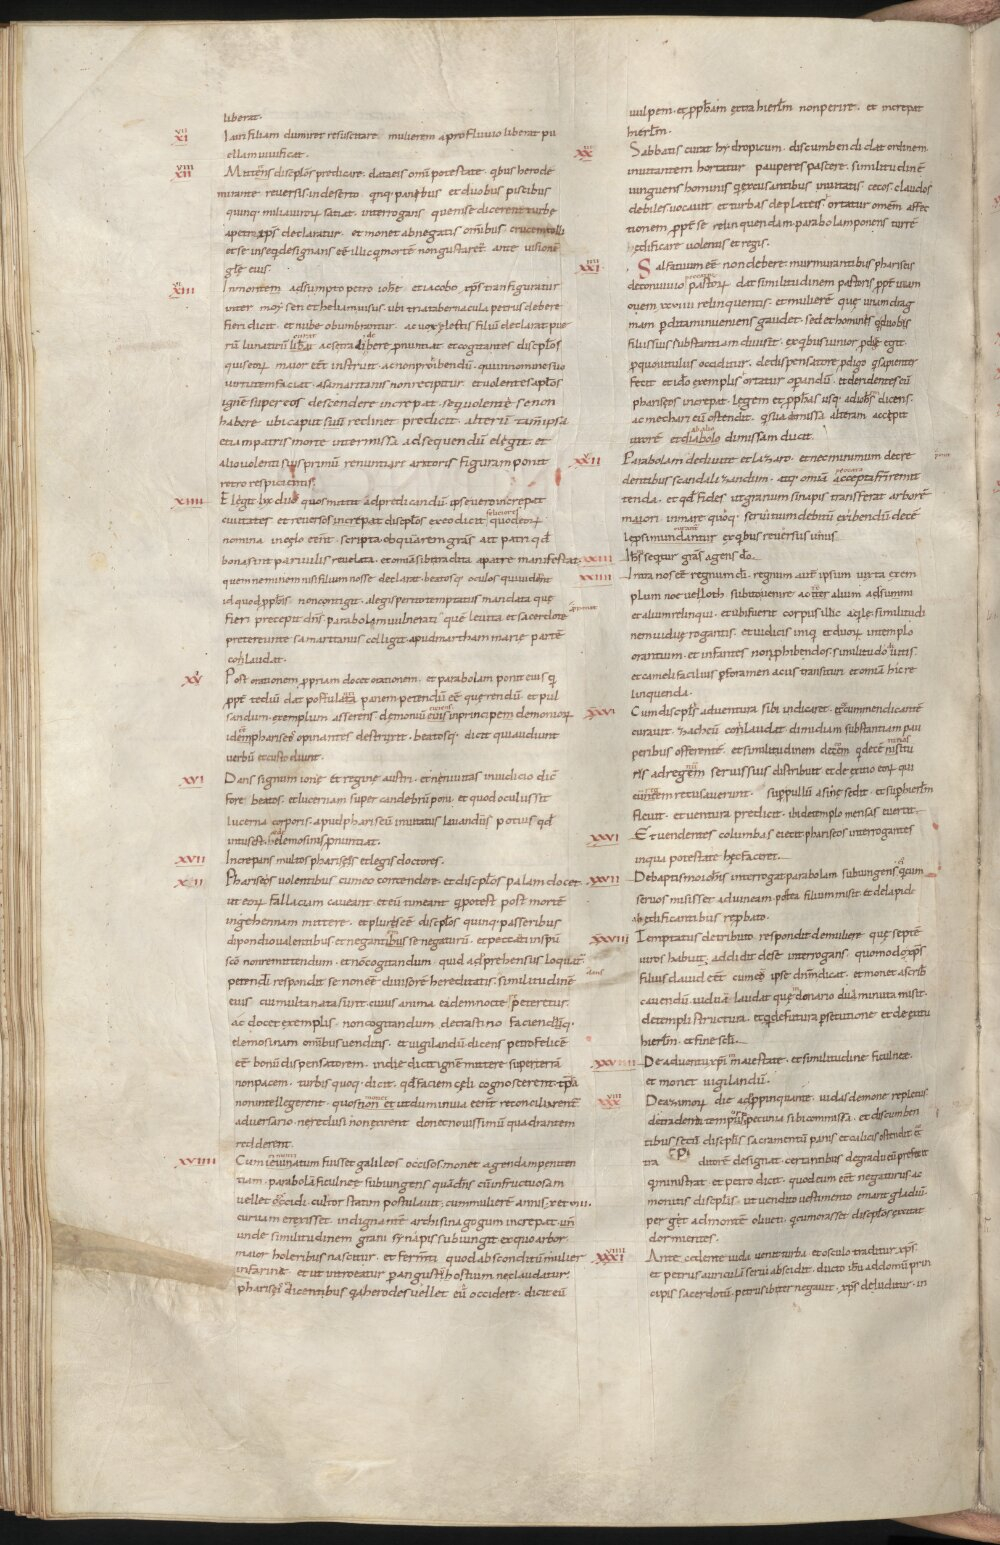 liberat.
XI Iairi filiam dum iret resuscitare. mulierem a profluuio liberat pu
ellam uiuificat.
XII Mittens discipłos predicare. data eis omi potestate. qbus herode
mirante. reuersis in deserto. qnq; panibus et duobus piscibus
quinq; milia uiroꝝ satiat. interrogans quem se dicerent turbe
a petro xp̄s declaratur. et monet abnegatis omibus crucem tolli
et se inseq designans eē illic q mortē non gustarēt. ante uisionē
glę eius.
XIII In montem adsumpto petro iohe et iacobo xp̄s transfiguratur
inter moysen et heliam uisus. ubi tria tabernacula petrus debere
fieri dicit. et nube obumbrantur. ac uox celestis filiū declarat pue
rū lunaticū liberat ac se tradi debere pnuntiat. et cogitantes discipłos
quis eoꝝ maior eēt instruit. ac non prohibendū. qui in nomine suo
uirtutem faciat. a samaritanis non recipitur. et uolentes apłos
ignē super eos descendere increpat. sequi uolentē se non
habere ubi caput suū reclinet predicit. alterū tam ipsa
etiam patris morte intermissa. ad sequendū elegit. et
alio uolenti suis primū renuntiare aratoris figuram ponit
retro respicientis.
XIIII Elegit lxx duo quos mittit ad predicandū. ipse uero increpat
ciuitates. et reuersos increpat discipłos ex eo dicit feliciores quod eoꝝ
nomina in celo eēnt scripta. ob quā rem gras ait patri qd
bona sint paruulis reuelata. et omia sibi tradita a patre manifestat
quem neminem nisi filium nosse declarat. beatosq; oculos qui uidānt
id quod pphis non contigit. a legis perito temptatus mandata que
fieri precepit dns. parabolam uulnerati quē leuita et sacerdote
pretereunte samaritanus colligit. apud martham marie partē
conlaudat.
XV Post orationem ppriam docet orationem. et parabolam ponit eius q
ppt tediū dat postulata panem petendū eē querendū et pul
sandum. exemplum asserens. demoniū eiciens in principem demonioꝝ
idem phariseos opinantes destruxit. beatosq; dicit qui audiunt
uerbū et custodiunt.
XVI Dans signum ione et regine austri. et niniuitas in iudicio dic
fore. beatos. et lucernam super candelabrū poni. et quod oculus sit
lucerna corporis. apud phariseū inuitatus lauandis potius qd
intus est. helemosinis pnuntiat.
XVII Increpans multos phariseos et legis doctores.
XVIII Phariseos uolentibus cum eo contendere. et discipłos palam docet
ut eoꝝ fallaciam caueant. et eū timeant q potest post mortē
in gehennam mittere. et pluris eē discipłos quinq; passeribus
dipondio ualentibus. et negantibus se negaturū. et peccati in spū
scō non remittendum. et nō cogitandum quid adprehensus loquat
petenti respondit se non eē diuisorē hereditatis. similitudinē
eius cui multa nata sunt. cuius anima eadem nocte peteretur.
ac docet exemplis. non cogitandum de crastino faciendāq;
elemosinam omibus uenditis. et uigilandū dicens petro felicē
eē bonū dispensatorem. inde dicit ignē mittere super terrā
non pacem. turbis quoq; dicit. qd faciem celi cognoscerent tpra
non intellegerent. quos monet et ut dum in uia eēnt reconciliarent
aduersario. ne reclusi non exirent. donec nouissimū quadrantem
redderent.
XVIIII Cum nuntiatum fuisset galileos occisos. monet agendam peniten
tiam. parabolā ficulneę subiungens quā dns cū infructuosam
uellet occidi. cultor statum postulauit. cum mulierē annis x et viii.
curuam erexisset. indignantē archisinagogum increpat. un
unde similitudinem grani synapis subiungit. ex quo arbor
maior holeribus nascitur. et fermti quod absconditū mulier
in farinā. et ut introeatur p angustū hostium ne claudatur
phariseis dicentibus qa herodes uellet eū occidere. dicit eū
uulpem. et pphām extra hierłm non perire. et increpat
hierłm.
XX Sabbatis curat hydropicum. discumbendi dat ordinem.
inuitantem hortatur pauperes pascere. similitudinē
iungens hominis q excusantibus inuitatis cecos. claudos
debiles uocauit. et turbas de plateis. ortatur omem affec
tionem ppt se relinquendam. parabolam ponens turrē
hedificare uolentis et regis.
XXI Sal fatuum eē non debere. murmurantibus phariseis
de conuiuio peccatoꝝ pastoꝝ dat similitudinem pastoris ppt unam
ouem xcviiii relinquentis. et mulierē quę unum drag
mam pdita inuenens gaudet. sed et hominis q duobus
filiis suis substantiam diuisit. ex qbus iunior pdige egit.
p quo uitulus occiditur. de dispensatore pdigo q sapienter
fecit. et ido exemplis ortatur operandū. et deridentes cū
phariseos increpat. legem et pphas usq; ad iohem dicens.
ac mechari eū ostendit. q sua dimissa alteram accepit
uxorē et ab alio diabolo dimissam ducit.
XXII Parabolam de diuite et lazaro. et nec minimum de cre
dentibus scandalizandum. atq; omia peccata accepta fri remit
tenda. et qd fides ut granum sinapis transferat arborē
maiori in mare quoq; seruitum debitū exibendū decē
leprosi mundantur. ex qbus reuersus unus.
XXIII Ihs sequitur gras agens do.
XXIIII Intra nos eēt regnum di. regnum aut ipsum iuxta exem
plum noe uel loth subito uenire ac inter alium adsumi
et alium relinqui. et ubi fuerit corpus illic aqle. similitudi
nem uiduę rogantis. et iudicis iniq et duoꝝ in templo
orantium. et infantes non phibendos. similitudo diuitis
et cameli facilius p foramen acus transituri et omia hic re
linquenda.
XXV Cum discipłs aduentura sibi indicaret. cecum mendicantē
curauit. zacheū conlaudat. dimidiam substantiam pau
peribus offerentē. et similitudinem decem q decē mnas
ris ad regem seruis suis distribuit et de exitio eoꝝ qui
eundem recusauerunt. super pullū asine sedit. et sup hierłm
fleuit. et uentura predicit. ibi de templo mensas euertit.
XXVI Et uendentes columbas eiecit phariseos interrogantes
in qua potestate hec faceret.
XXVII De baptismo iohis interrogat. parabolam subiungens q cum
seruos misisset ad uineam. postea filium misit. et de lapide
ab edificantibus repbato.
XXVIII Temptatus de tributo. respondit de muliere quę septē
uiros habuit. addidit de se interrogans quomodo xp̄s
filius dauid eēt. cum eum ipse dnm dicat. et monet a scrib
cauendū. uiduā laudat quę in donario duā minuta misit.
de templi structura. et q de futura psecutione et de exitu
hierłm. et fine scłi.
XXVIIII De aduentu xpi in maiestate. et similitudine ficulnee.
et monet uigilandū.
XXX De azimoꝝ die adppinquante. iudas demone repletus
de tradendo tempus pecunia sibi commissa. et discumben
tibus secū discipłis sacramentū panis et calicis ostendit et
tra ditorē designat. certantibus de gradu eū preferit
q ministrat. et petro dicit. quod eum eēt negaturus ac
monitis discipłis. ut uendito uestimento emant gladiū.
pergit ad montē oliueti. q cum orasset discipłos excitat
dormientes.
XXXI Antecedente iuda uenit turba et osculo traditur xp̄s.
et petrus auriculā serui abscidit. ducto ihū ad domū prin
cipis sacerdotū. petrus ibi ter negauit. xp̄s deluditur. in